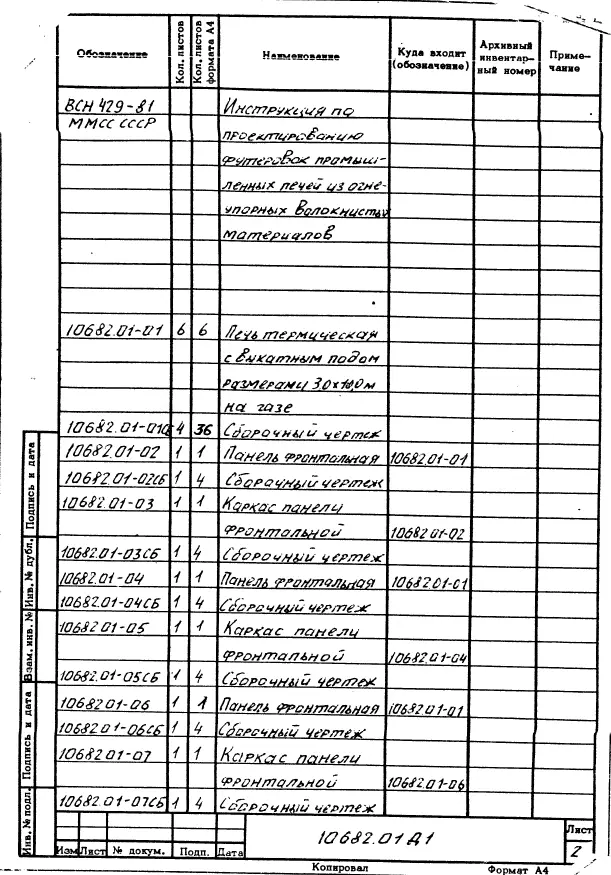 Обозначение Кол. листов Кол. листов формата А4 Наименование Куда входит (обозначение) Архивный инвентарный номер Примечание
ВСН 429-81 Инструкция по
ММСС СССР проектированию
футеровок промыш-
ленных печей из огне-
упорных волокнистых
материалов
10682.01-01 6 6 Печь термическая
с выкатным подом
размерами 3,0х10,0м
на газе
10682.01-01СБ 4 36 Сборочный чертеж
10682.01-02 1 1 Панель фронтальная 10682.01-01
10682.01-02СБ 1 4 Сборочный чертеж
10682.01-03 1 1 Каркас панели
фронтальной 10682.01-02
10682.01-03СБ 1 4 Сборочный чертеж
10682.01-04 1 1 Панель фронтальная 10682.01-01
10682.01-04СБ 1 4 Сборочный чертеж
10682.01-05 1 1 Каркас панели
фронтальной 10682.01-04
10682.01-05СБ 1 4 Сборочный чертеж
10682.01-06 1 1 Панель фронтальная 10682.01-01
10682.01-06СБ 1 4 Сборочный чертеж
10682.01-07 1 1 Каркас панели
фронтальной 10682.01-06
10682.01-07СБ 1 4 Сборочный чертеж
Подпись и дата
Инв. № дубл.
Взам. инв. №
Подпись и дата
Инв. № подл.
Изм Лист № докум. Подп. Дата
10682.01 Д1
Лист
2
Копировал Формат А4